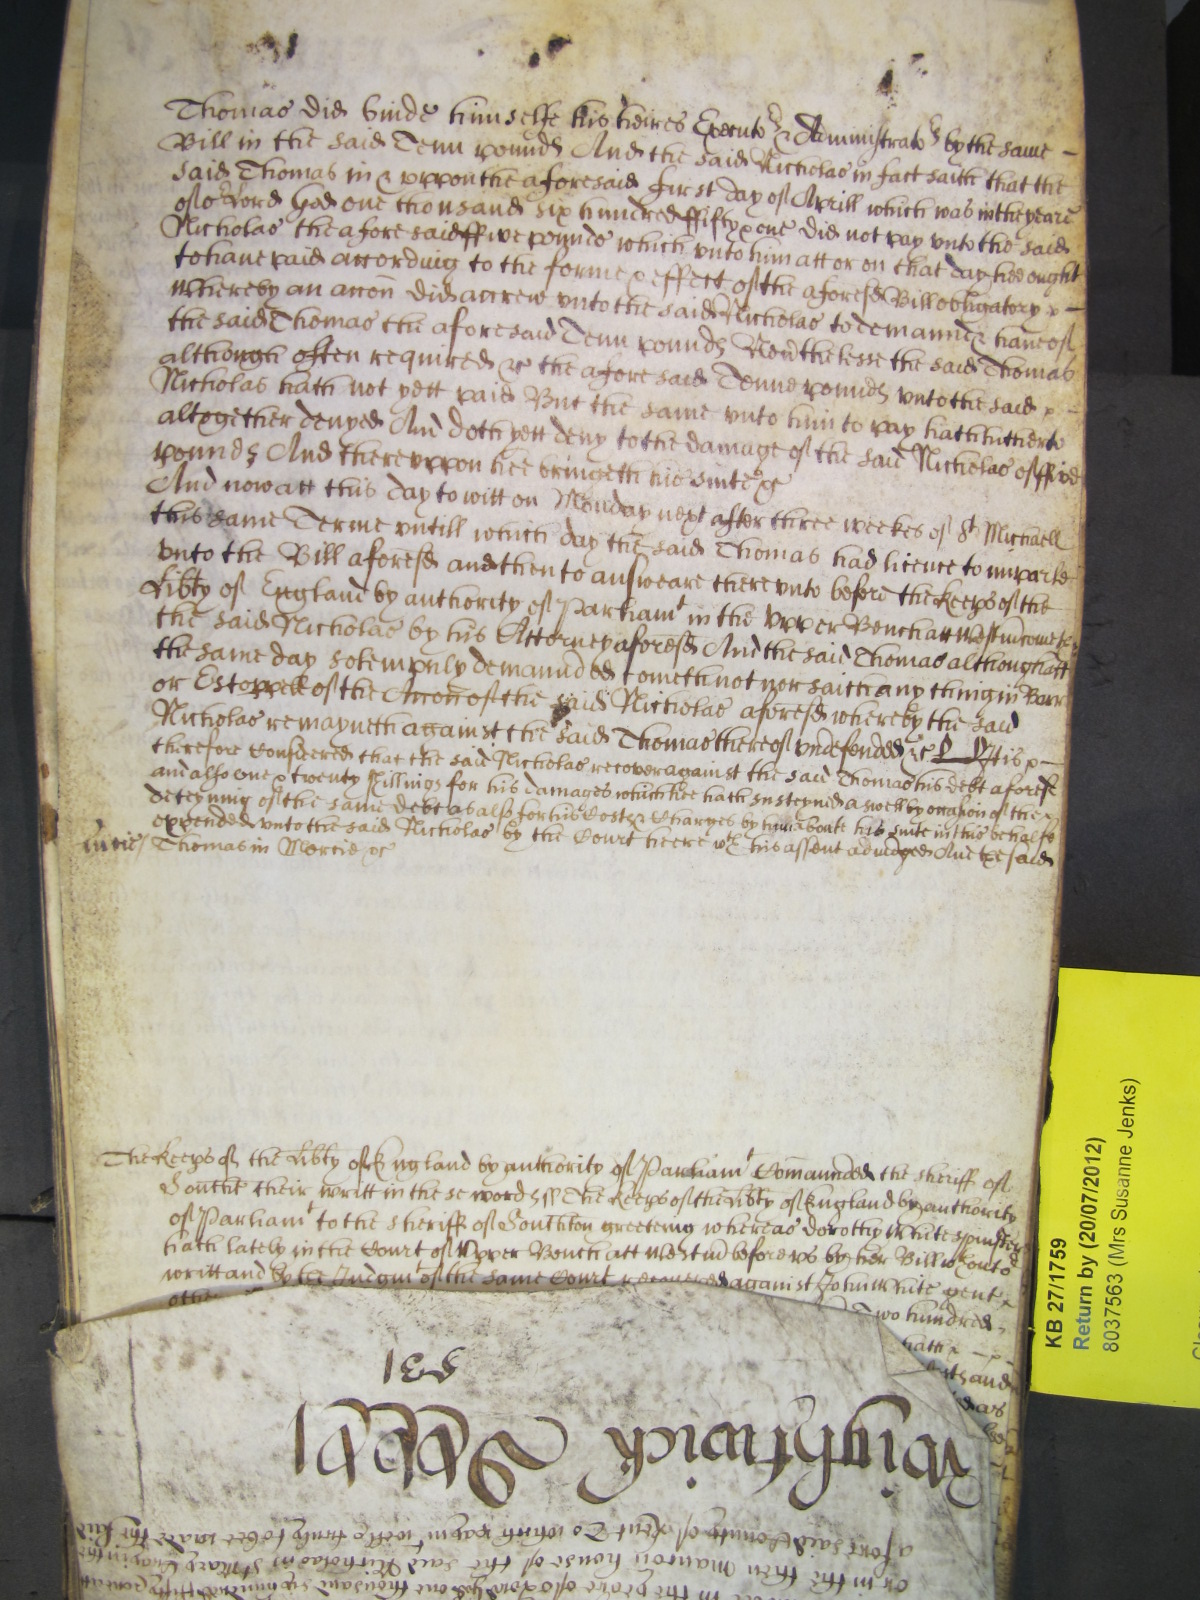 Thomas did binde himselfe his heires Executors & Administrators by the same
Bill in the said Tenn pounds And the said Nicholas in fact saith that the
said Thomas in & uppon the aforesaid first day of Aprill which was in the yeare
of or Lord God one thousand six hundred ffifty & one did not pay unto the said
Nicholas the afore said ffive pounds which unto him att or on that day hee ought
to have paid according to the forme & effect of the aforesd Bill obligatory &
Whereby an accon did accrew unto the said Nicholas to demannd & have of
the said Thomas the aforesaid Tenn pounds Neverthelesse the said Thomas
although often required &c the afore said Tenne pounds unto the said
Nicholas hath not yett paid But the same unto him to pay hath hitherto
altogether denyed And doth yett deny to the damage of the said Nicholas of ffive
pounds And thereuppon hee bringeth his suite &c
And now att this day to witt on Monday next after three weekes of St Michaell
this same Terme untill which day the said Thomas had licence to imparle
unto the Bill aforesd and then to answeare there unto before the Keeps of the
Libty of England by authority of Parliamt in the Upper Bench att Westm come
the said Nicholas by his Attorney aforesd And the said Thomas although att
the same day solempnly demannded cometh not nor saith any thing in Barr
or Estoppell of the Accon of the said Nicholas aforesd whereby the said
Nicholas remayneth against the said Thomas thereof undefended &c It is
therefore Considered that the said Nicholas recover against the said Thomas his debt aforesd
and also one & twenty shillings for his damages which hee hath susteyned aswell by occasion of the
deteyning of the same debt as also for his Costs & Charges by him aboute his suite in this behalfe
expended unto the said Nicholas by the Court heere wth his assent adiudged And the said
Thomas in Mercie &c
The Keeps of the Libty of England by authority of Parliamt Comannded the sheriff of
Southt their writt in these words ss The Keeps of the Libty of England by authority
of Parliamt to the sheriff of Southton greeteing whereas Dorothy White spinster
hath lately in the Court of Upper Bench att Westm before us by her Bill wthout
writt and by the Judgmt of the same Court recovered against John White gent
Two hundred
hath
and
KB 27/1759
Return by (20/07/2012)
8037563 (Mrs Susanne Jenks)
531
Wightwick
in the yeare of or Lord God one thousand six hundred fifty
or in the then Mancon house of the said Nicholas in St Mary Cray in the
aforesaid County of Kent To which paymt well & truly to bee made the said